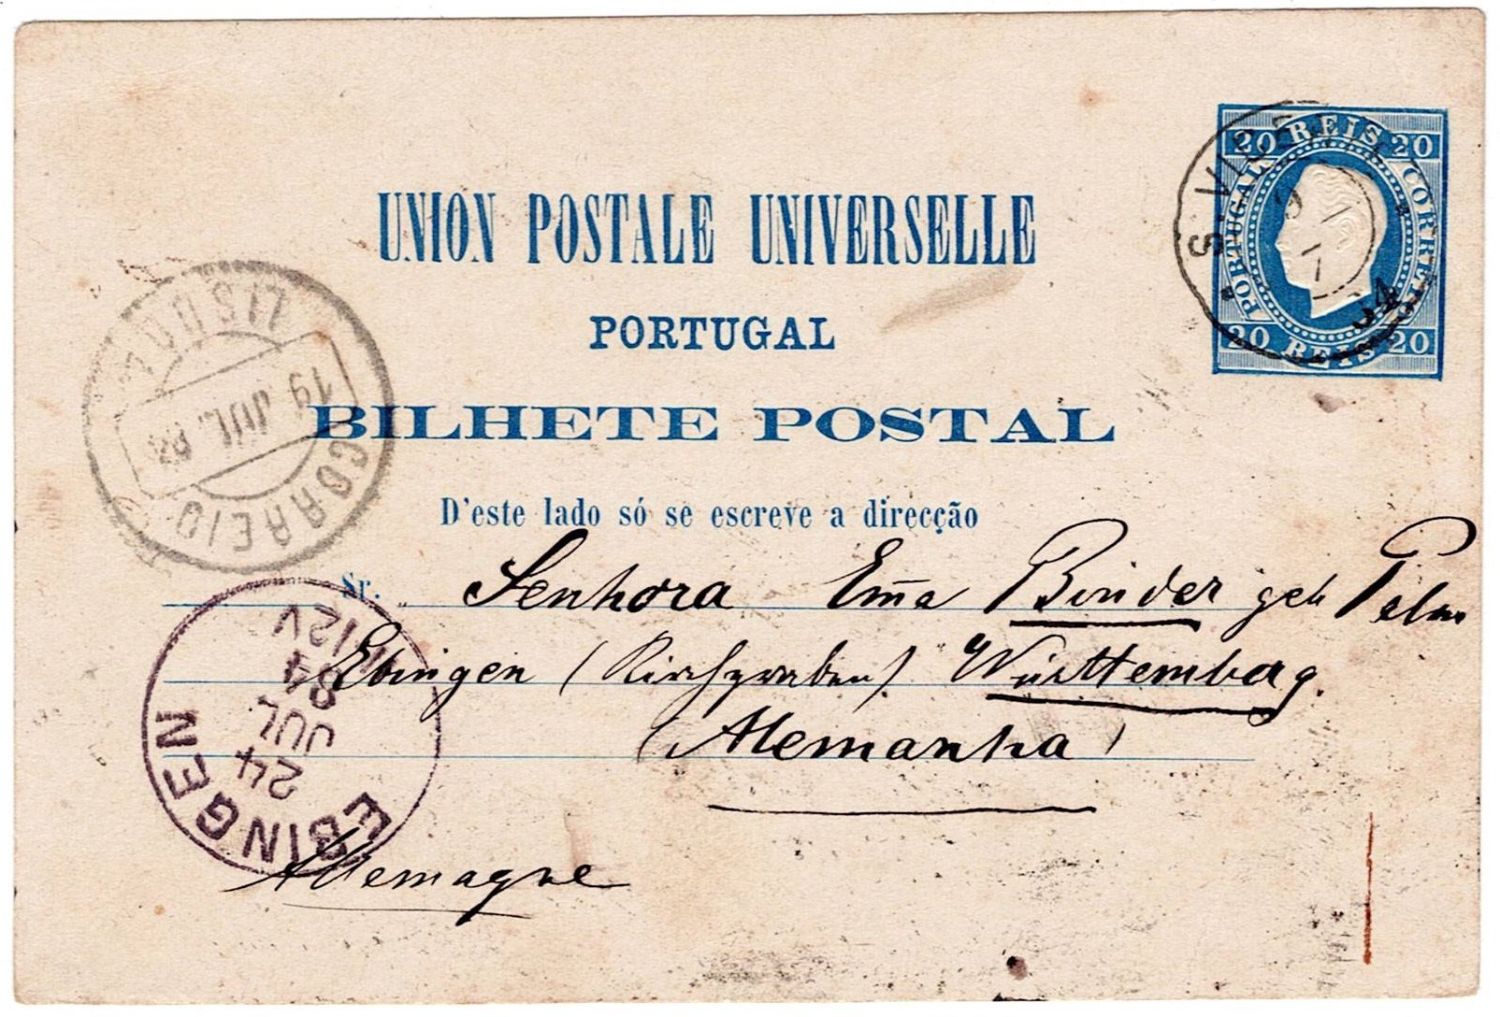 UNION POSTALE UNIVERSELLE
PORTUGAL
BILHETE POSTAL
D'este lado só se escreve a direcção
20 REIS 20
PORTUGAL CORREIO
20 REIS 20
S. VICENTE
9 7
CORREIO
19 JUL. 84
LISBOA
Sr. Senhora Em̄a Binder geb
Ebingen (Kirchgraben) Württemberg.
(Alemanha)
Allemagne
EBINGEN
24
JUL
84
12V